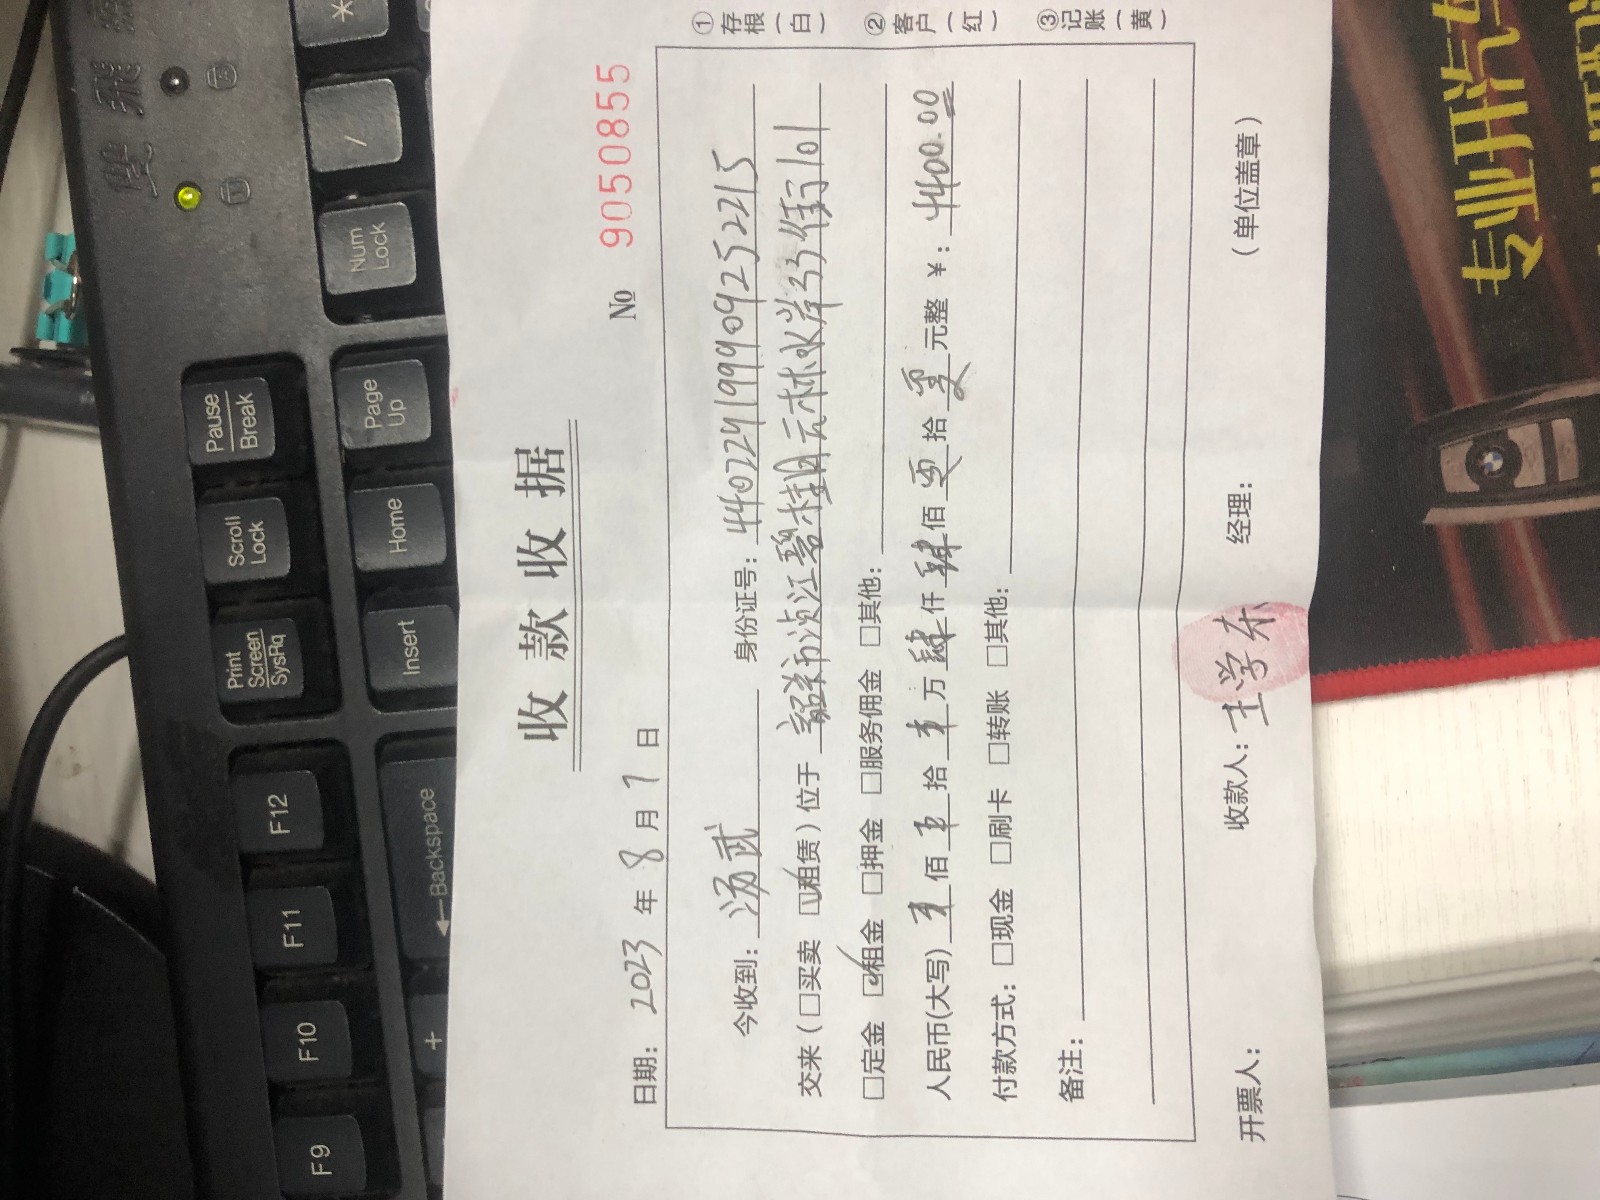 收款收据
№ 9050855
日期: 2023 年 8 月 1 日
今收到: 汤武 身份证号: 440229199909252215
交来 (□买卖 ☑租赁) 位于 韶关市浈江碧桂园云林水岸33街101
□定金 ☑租金 □押金 □服务佣金 □其他:
人民币(大写) 零 佰 零 拾 零 万 肆 仟 肆 佰 零 拾 零 元整 ¥: 4400.00
付款方式: □现金 □刷卡 □转账 □其他:
备注:
开票人: 收款人: 王学东 经理: (单位盖章)
①存根(白)
②客户(红)
③记账(黄)
F9
F10
F11
F12
Print Screen SysRq
Scroll Lock
Pause Break
+
←Backspace
Insert
Home
Page Up
Num Lock
/
*
专业开汽车